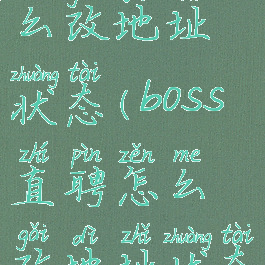 么改地址
zhuàng tài
状态(boss
zhí pìn zěn me
直聘怎么
gǎi dì zhǐ zhuàng tài
改地址状态